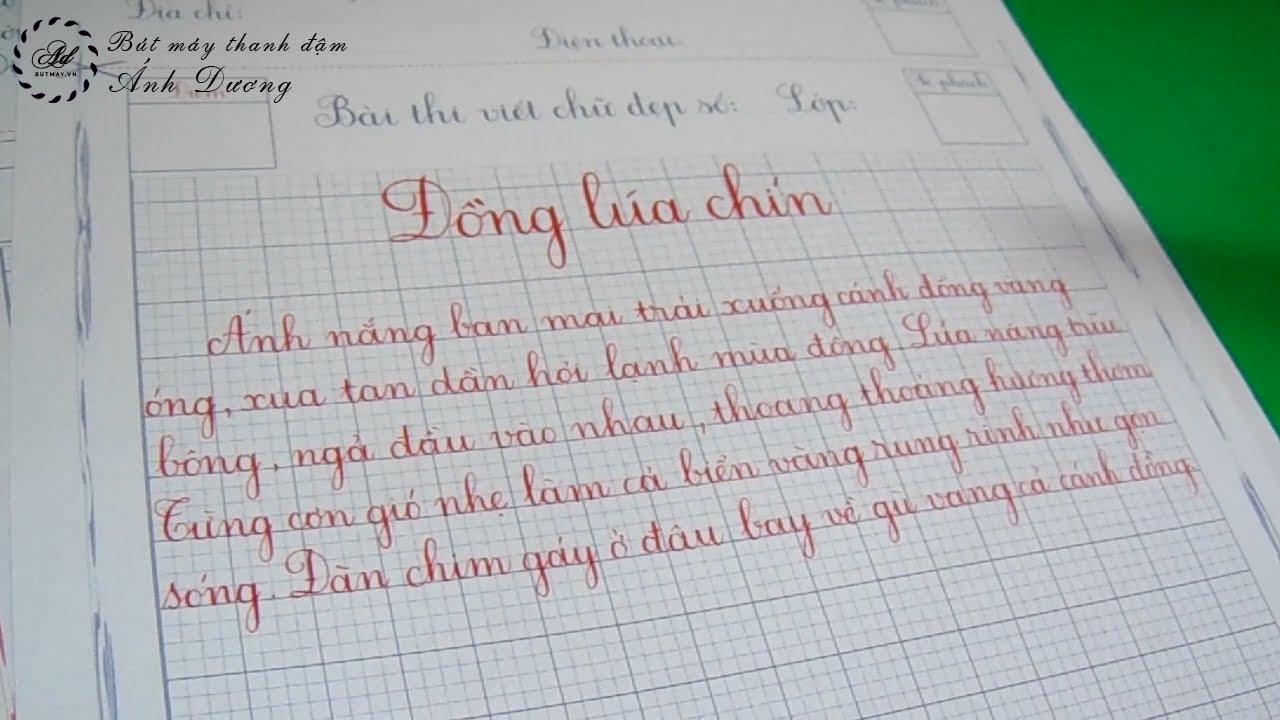 Địa chỉ:
Điện thoại
Ad
BUTMAY.VN
Bút máy thanh đậm
Ánh Dương
Điểm
Số phách
Bài thi viết chữ đẹp số: Lớp:
Đồng lúa chín
Ánh nắng ban mai trải xuống cánh đồng vàng
óng, xua tan dần hơi lạnh mùa đông Lúa nặng trĩu
bông, ngả đầu vào nhau, thoang thoảng hương thơm
Từng cơn gió nhẹ làm cả biển vàng rung rinh như gợn
sóng. Đàn chim gáy ở đâu bay về gù vang cả cánh đồng